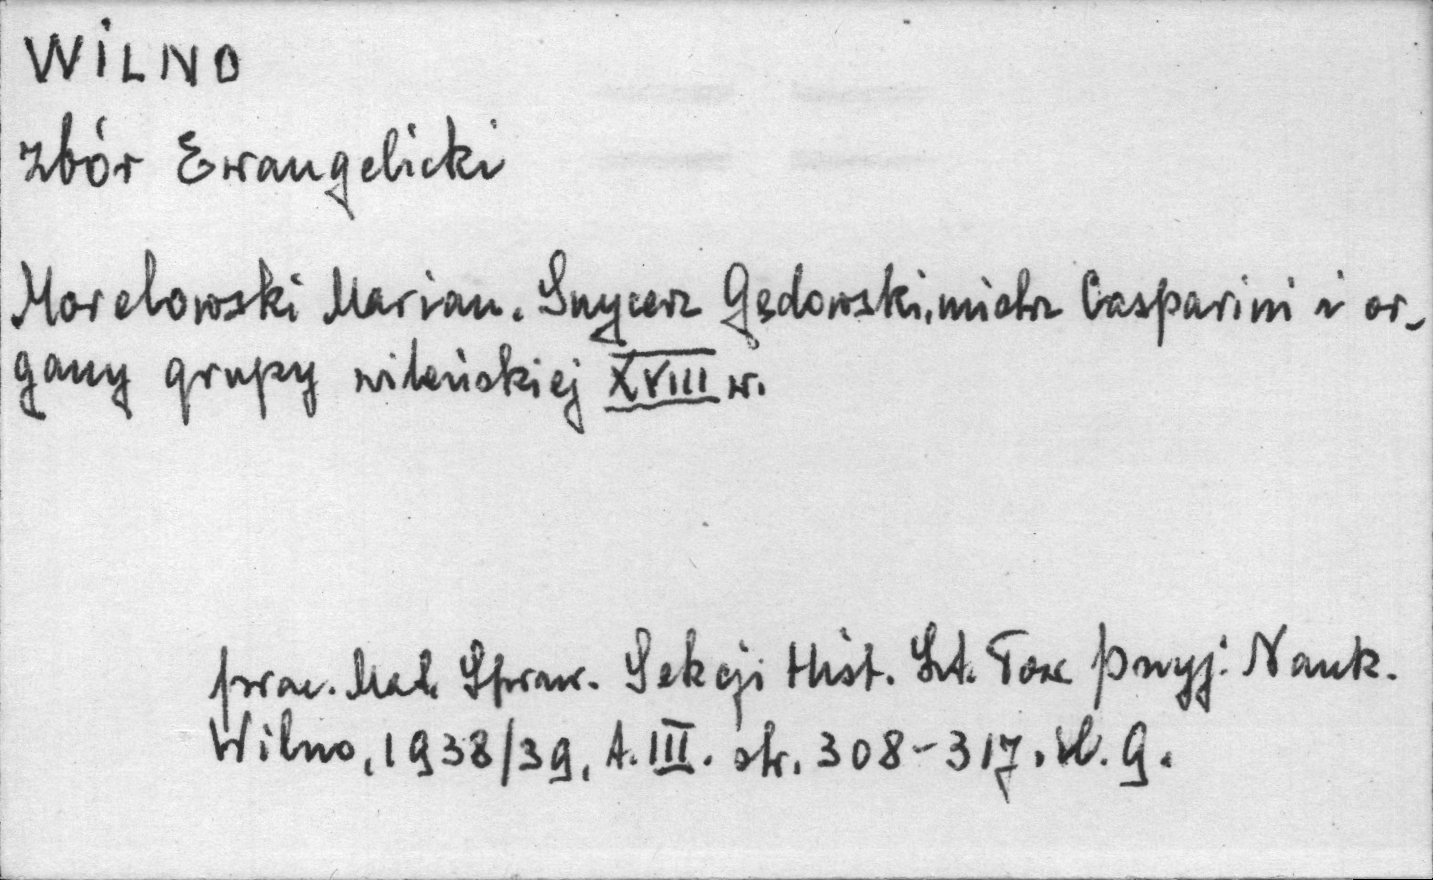 WILNO
Zbór Ewangelicki
Morelowski Marian. Snycerz Gędowski, mistrz Casparini i or-
gany grupy wileńskiej XVIII w.
prac. Mat. Spraw. Sekcji Hist. Szt. Tow. Przyj. Nauk.
Wilno, 1938/39, t. III. str. 308-317. il. 9.